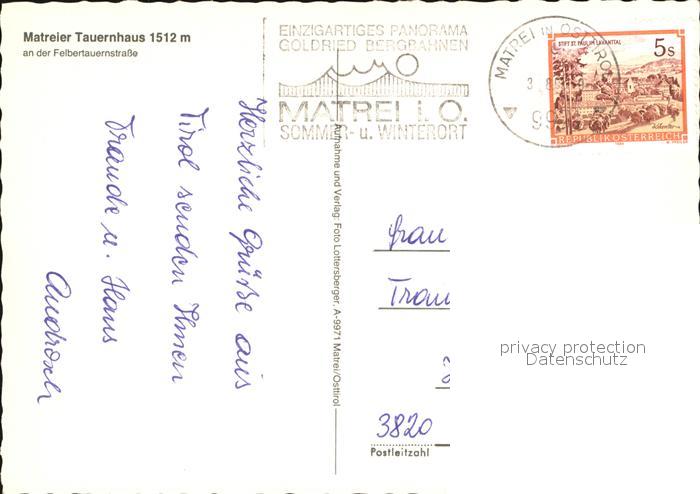 Matreier Tauernhaus 1512 m
an der Felbertauernstraße
EINZIGARTIGES PANORAMA
GOLDRIED BERGBAHNEN
MATREI i. O.
SOMMER- u. WINTERORT
MATREI IN OSTTIROL
STIFT ST. PAUL IM LAVANTTAL
5s
REPUBLIK ÖSTERREICH
Herzliche Grüße aus
Tirol senden Ihnen
Traude u. Hans
Androsch
Aufnahme und Verlag: Foto Lottersberger, A-9971 Matrei/Osttirol
Frau
Trau
3820
Postleitzahl
privacy protection
Datenschutz